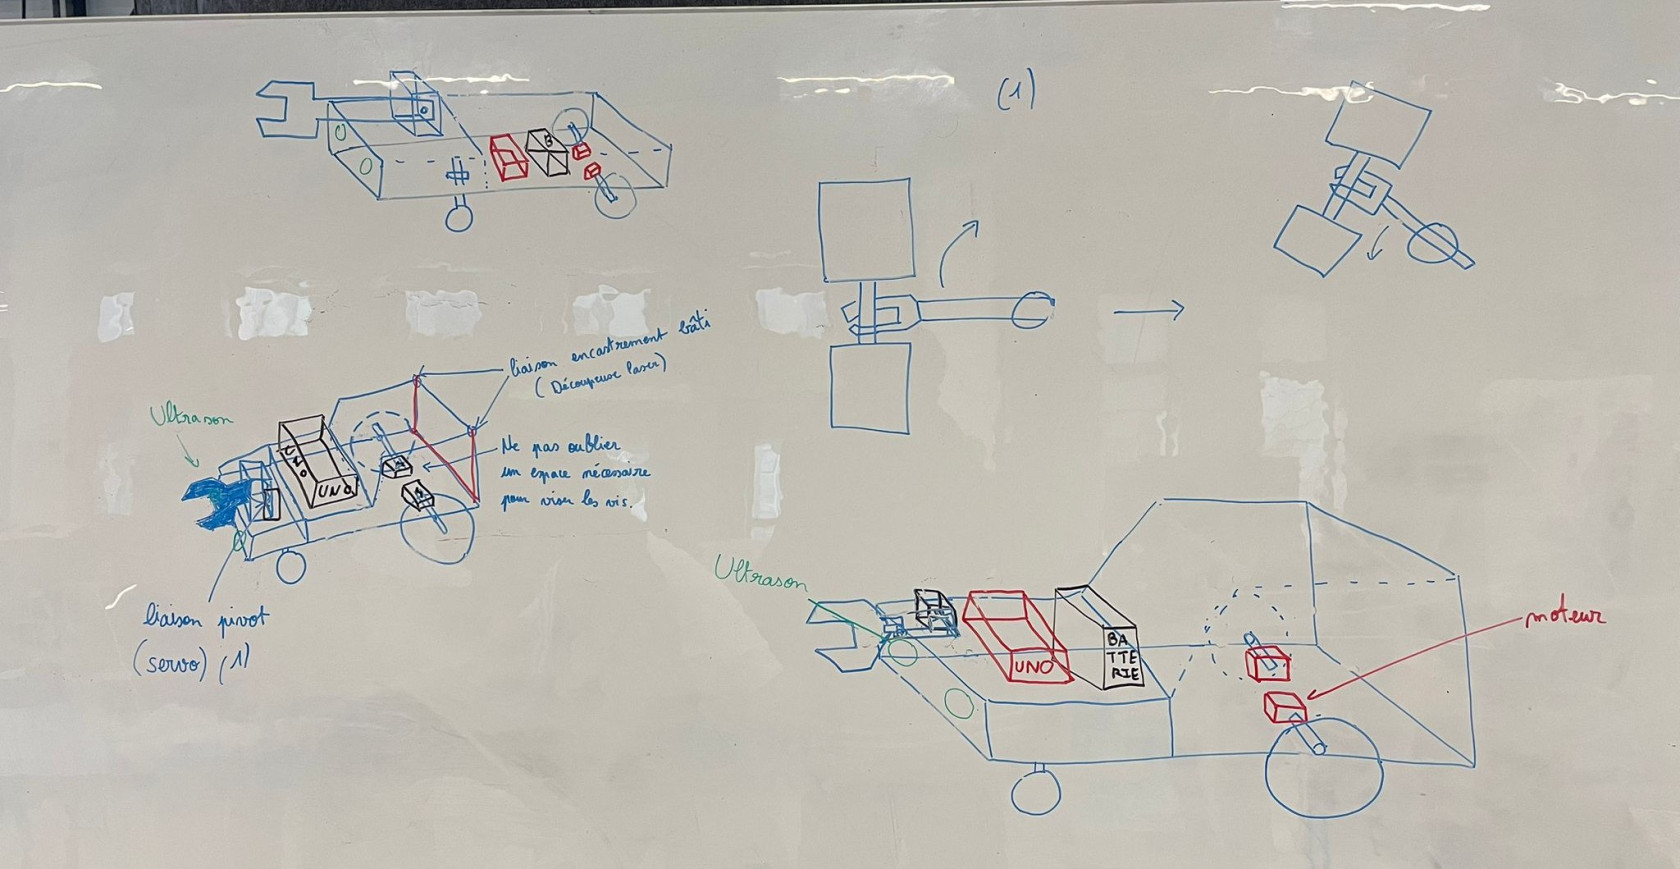 (1)
B
liaison encastrement bâti
(Découpeuse laser)
Ultrason
UNO
Ne pas oublier
un espace nécessaire
pour viser les vis.
liaison pivot
(servo) (1)
Ultrason
UNO
BA
TTE
RIE
moteur